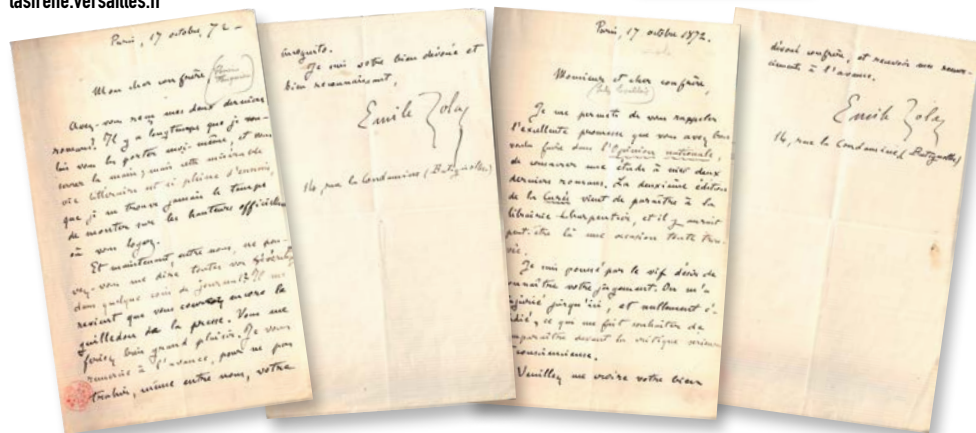 lasirene.versailles.fr
Paris, 17 octobre, 72 –
Mon cher confrère,
Avez-vous reçu mes deux derniers
romans? Il y a longtemps que je vou-
lais vous les porter moi-même, et vous
serrer la main; mais cette misérable
vie littéraire est si pleine d'ennuis,
que je ne trouve jamais le temps
de monter sur les hauteurs officielles
où vous logez.
Et maintenant, entre nous, ne pou-
vez-vous me dire toutes vos
dans quelque coin de journal? Il me
revient que vous encore le
guilledou de la presse. Vous me
feriez bien grand plaisir. Je vous
remercie à l'avance, pour ne pas
trahir, même entre nous, votre
incognito.
Je suis votre bien dévoué et
bien reconnaissant,
Emile Zola
14, rue la Condamine (Batignolles)
Paris, 17 octobre 1872.
Monsieur et cher confrère,
Je me permets de vous rappeler
l'excellente promesse que vous avez bien
voulu faire dans l'Opinion nationale,
de consacrer une étude à mes deux
derniers romans. La deuxième édition
de la Curée vient de paraître à la
librairie Charpentier, et il y aurait
peut-être là une occasion toute trou-
vée.
Je suis poussé par le vif désir de
connaître votre jugement. On m'a
injurié jusqu'ici, et nullement é-
tudié, ce qui me fait souhaiter de
comparaître devant la critique sérieuse
consciencieuse.
Veuillez me croire votre bien
dévoué confrère, et recevoir mes remer-
ciements à l'avance.
Emile Zola
14, rue la Condamine (Batignolles)